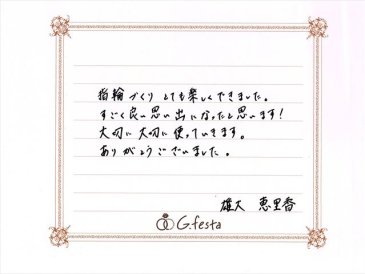 指輪づくりとても楽しくできました。
すごく良い思い出になったと思います!
大切に大切に使っていきます。
ありがとうございました。
雄大 恵里香
G.festa